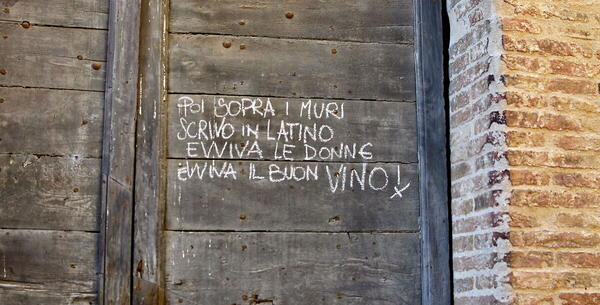 POI SOPRA I MURI
SCRIVO IN LATINO
EVVIVA LE DONNE
EVVIVA IL BUON VINO!